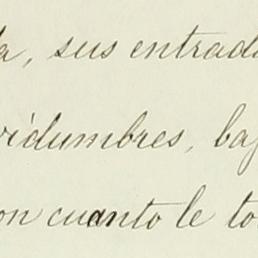 la, sus entrada
vidumbres, baj
on cuanto le to